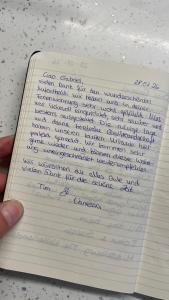 28.07.24
Ciao Gabriel,
vielen Dank für den wunderschönen
Aufenthalt. Wir haben uns in deiner
Ferienwohnung sehr wohl gefühlt. Alles
war liebevoll eingerichtet, sehr sauber und
bestens ausgestattet. Die ruhige Lage
und deine herzliche Gastfreundschaft
haben unseren Urlaub hier
perfekt gemacht. Wir kommen sehr
gerne wieder und können diese
uneingeschränkt weiterempfehlen.
Wir wünschen dir alles Gute und
vielen Dank für die schöne Zeit
Tim &
Vanessa